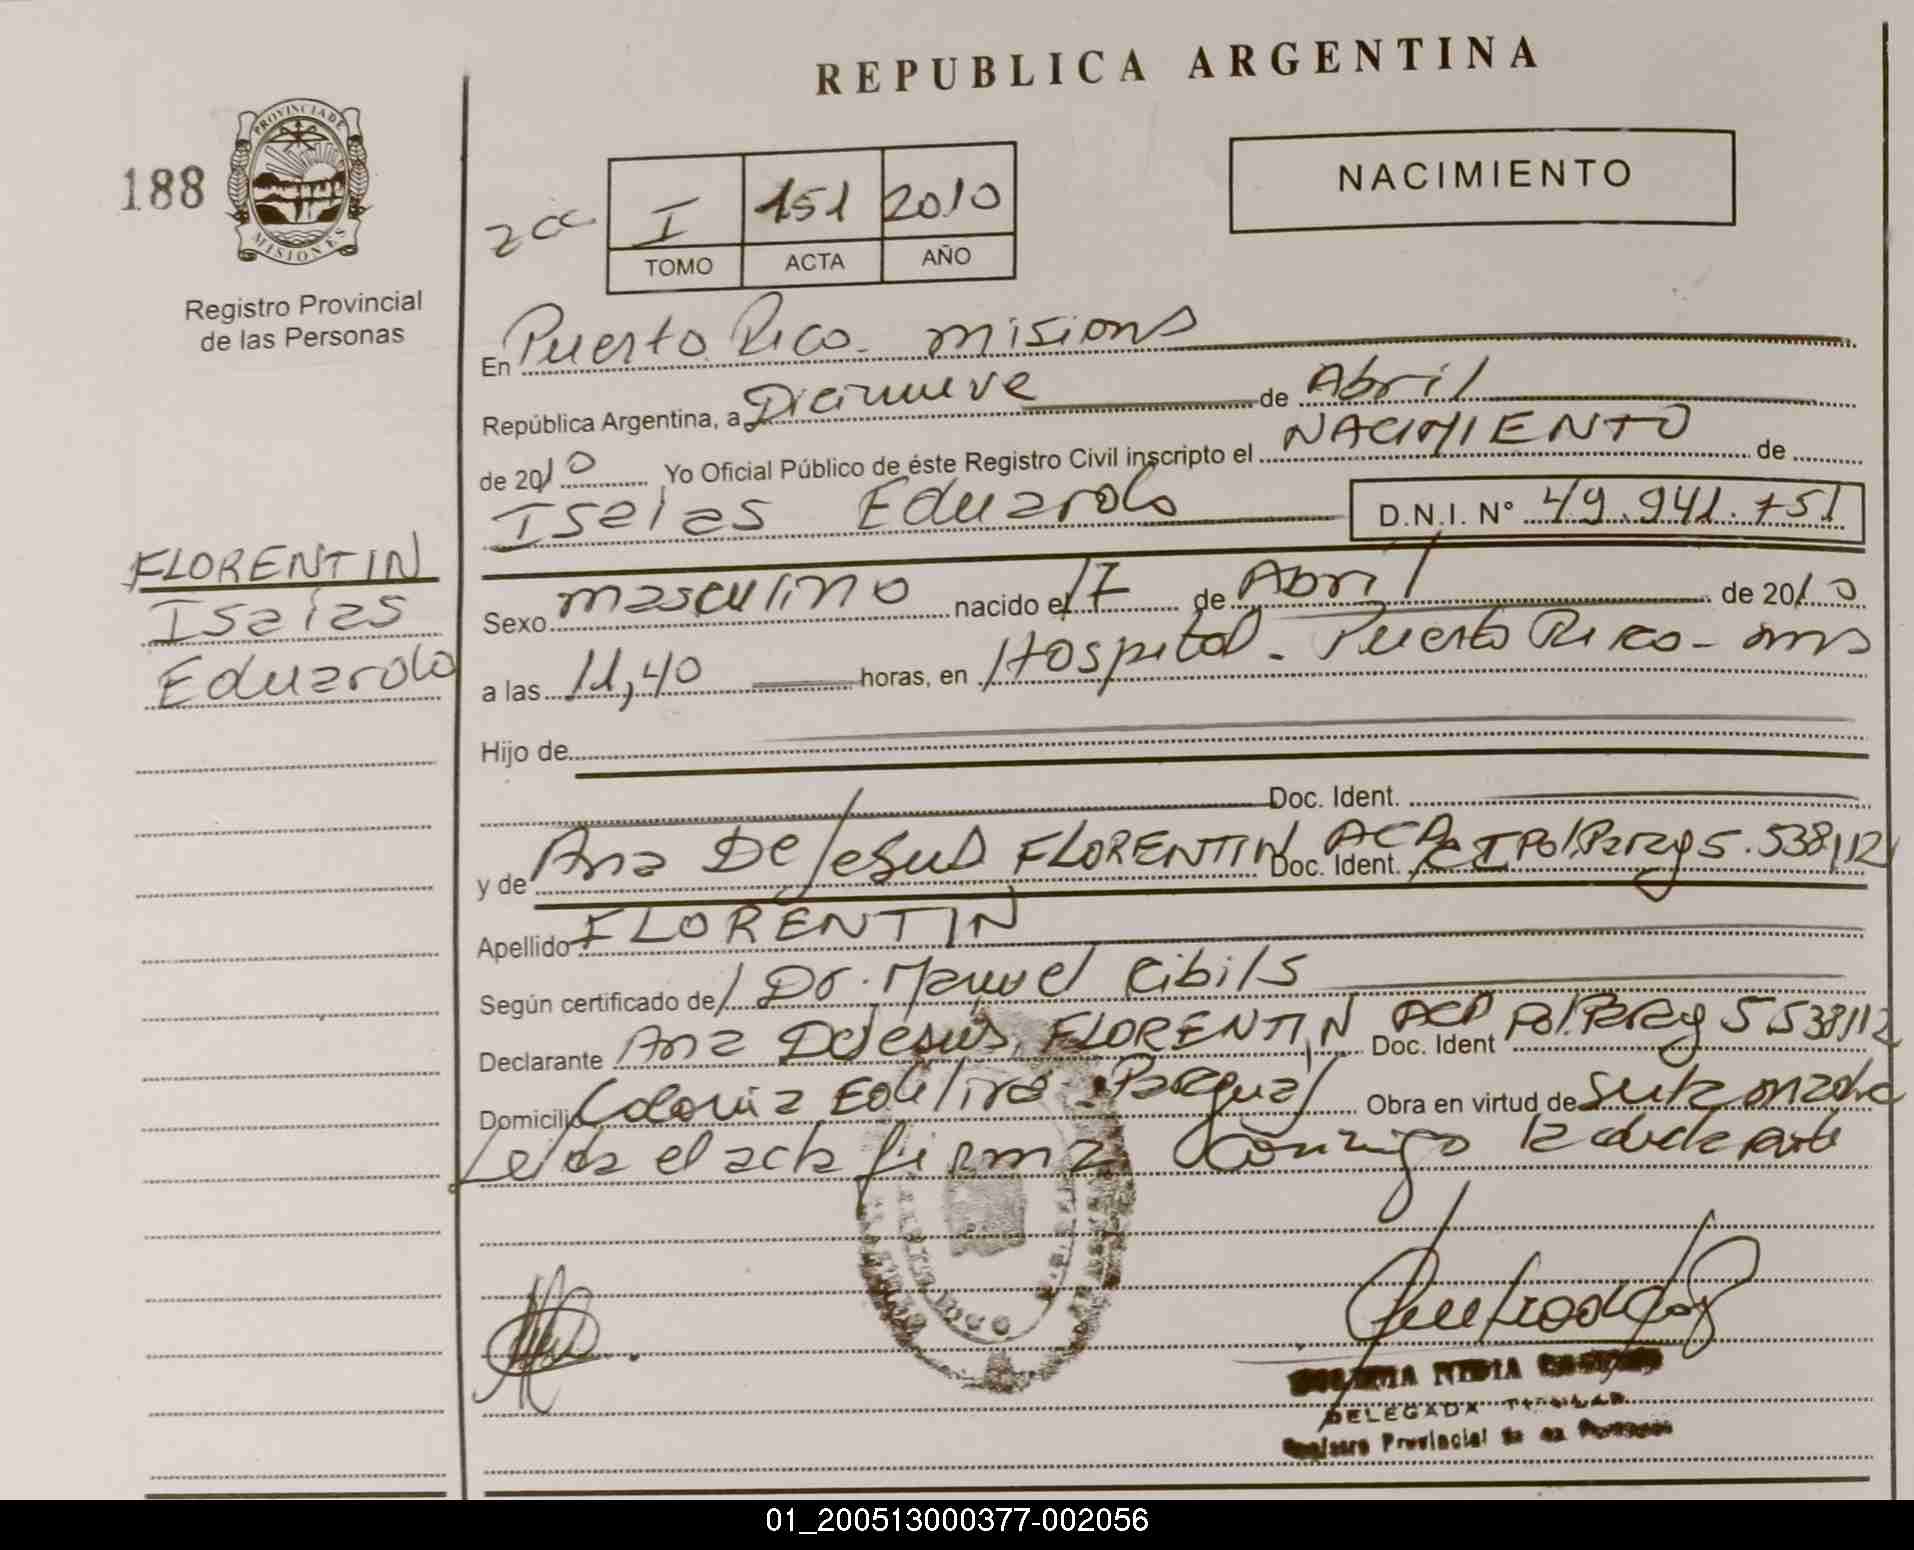 REPUBLICA ARGENTINA
188
PROVINCIA DE
MISIONES
Registro Provincial
de las Personas
NACIMIENTO
I 151 2010
TOMO ACTA AÑO
En Puerto Rico - misions
República Argentina, a Diecinueve de Abril
de 2010 Yo Oficial Público de éste Registro Civil inscripto el NACIMIENTO de
Isaias Eduardo D.N.I. N° 49.941.751
FLORENTIN
Isaias
Eduardo
Sexo masculino nacido el 17 de Abril de 2010
a las 11,40 horas, en Hospital - Puerto Rico - mns
Hijo de
Doc. Ident.
y de Ana De Jesus FLORENTIN Doc. Ident. ACP CI Pol.Parag 5.538,112
Apellido FLORENTIN
Según certificado de Dr. Manuel Cibils
Declarante Ana De Jesus, FLORENTIN Doc. Ident ACP Pol.Parag 5.538,112
Domicilio Colonia Edelira - Paraguay Obra en virtud de
Leida el acta firma Conmigo la declarante
DELEGADA
Registro Provincial de las Personas
01_200513000377-002056